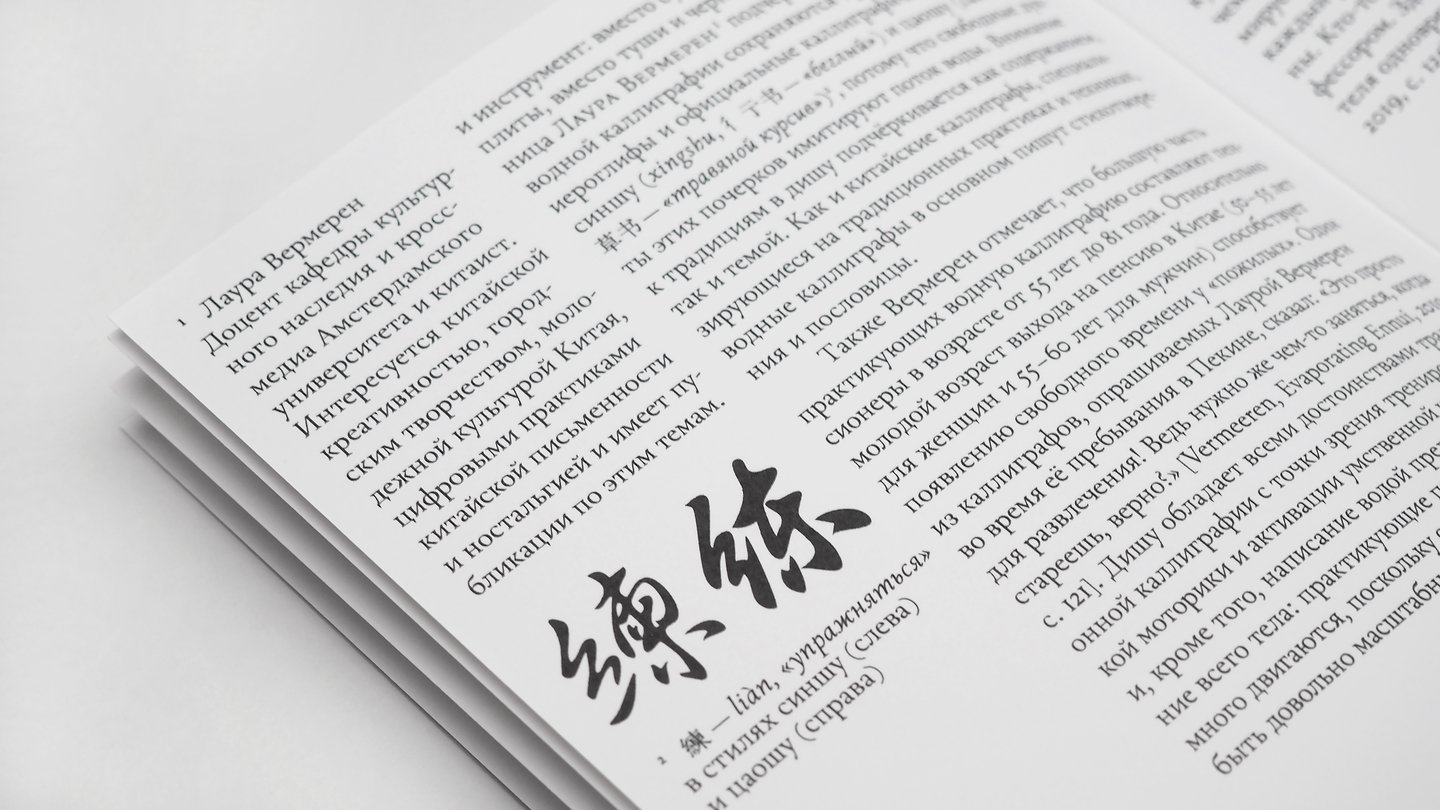 1 Лаура Вермерен
Доцент кафедры культур-
ного наследия и кросс-
медиа Амстердамского
университета и китаист.
Интересуется китайской
креативностью, город-
ским творчеством, моло-
дежной культурой Китая,
цифровыми практиками
китайской письменности
и ностальгией и имеет пу-
бликации по этим темам.
練 练
2 練 — liàn, «упражняться»
в стилях синшу (слева)
и цаошу (справа)
и инструмент: вместо
плиты, вместо туши и
ница Лаура Вермерен1
водной каллиграфии сохраняются
иероглифы и официальные
синшу (xingshu, 行书 — «беглый») и цаошу
草书 — «травяной курсив»)2, потому что свободные
ты этих почерков имитируют поток воды. Внимание
к традициям в дишу подчёркивается как содержанием
так и темой. Как и китайские каллиграфы, специали-
зирующиеся на традиционных практиках и техниках,
водные каллиграфы в основном пишут стихотворе-
ния и пословицы.
Также Вермерен отмечает, что большую часть
практикующих водную каллиграфию составляют пен-
сионеры в возрасте от 55 лет до 81 года. Относительно
молодой возраст выхода на пенсию в Китае (50–55 лет
для женщин и 55–60 лет для мужчин) способствует
появлению свободного времени у «пожилых». Один
из каллиграфов, опрашиваемых Лаурой Вермерен
во время её пребывания в Пекине, сказал: «Это просто
для развлечения! Ведь нужно же чем-то заняться, когда
стареешь, верно?» [Vermeeren, Evaporating Ennui,
с. 121]. Дишу обладает всеми достоинствами
онной каллиграфии с точки зрения
кой моторики и активации умственной
и, кроме того, написание водой
ние всего тела: практикующие
много двигаются, поскольку
быть довольно
каждый
ны. Кто-то
фессором.
теля
2019, с.